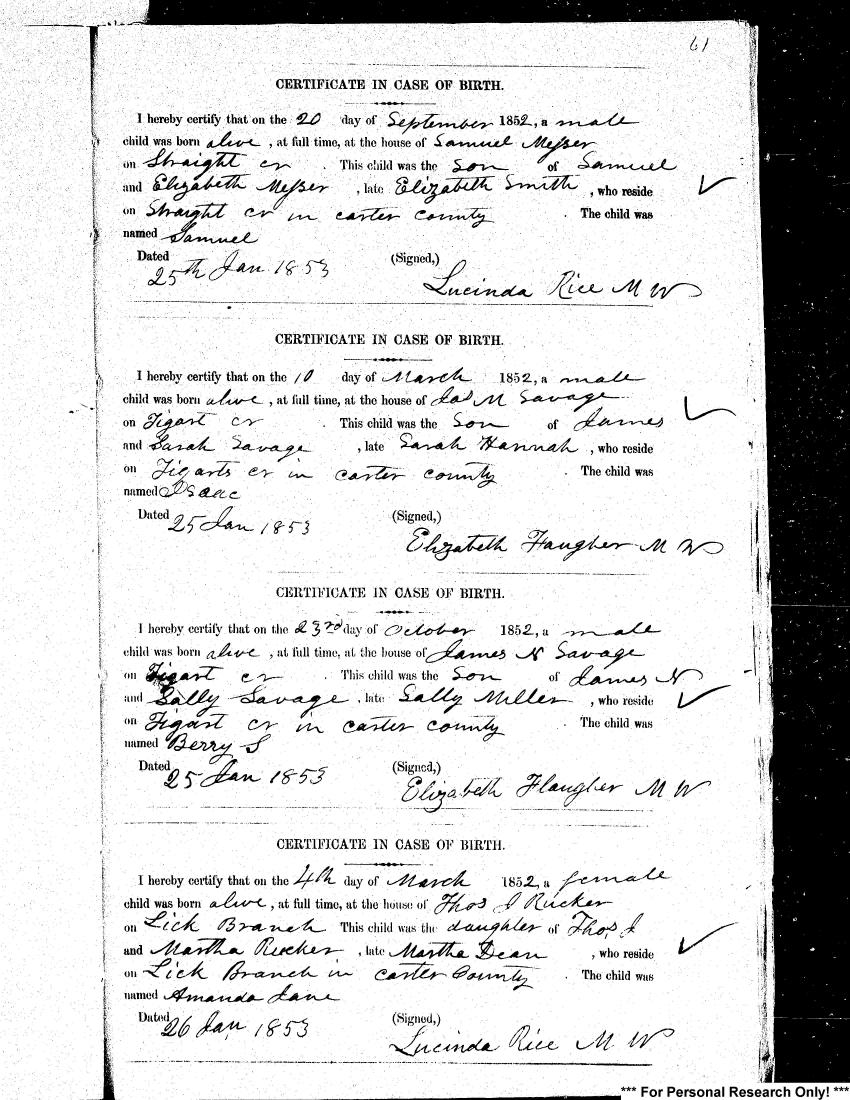 61
CERTIFICATE IN CASE OF BIRTH.
I hereby certify that on the 20 day of September 1852, a male
child was born alive, at full time, at the house of Samuel Messer
on Straight cr. This child was the Son of Samuel
and Elizabeth Messer, late Elizabeth Smith, who reside
on Straight cr in carter county. The child was
named Samuel
Dated 25th Jan 1853 (Signed,)
Lucinda Rice M W
CERTIFICATE IN CASE OF BIRTH.
I hereby certify that on the 10 day of March 1852, a male
child was born alive, at full time, at the house of Jas M Savage
on Tigart cr. This child was the Son of James
and Sarah Savage, late Sarah Hannah, who reside
on Tigarts cr in carter county. The child was
named Isaac
Dated 25 Jan 1853 (Signed,)
Elizabeth Faugher M W
CERTIFICATE IN CASE OF BIRTH.
I hereby certify that on the 23rd day of October 1852, a male
child was born alive, at full time, at the house of James N Savage
on Tigart cr. This child was the Son of James N
and Sally Savage, late Sally Miller, who reside
on Tigart cr in carter county. The child was
named Berry S
Dated 25 Jan 1853 (Signed,)
Elizabeth Flaugher M W
CERTIFICATE IN CASE OF BIRTH.
I hereby certify that on the 4th day of March 1852, a female
child was born alive, at full time, at the house of Thos J Rucker
on Lick Branch This child was the daughter of Thos J
and Martha Rucker, late Martha Dean, who reside
on Lick Branch in carter County. The child was
named Amanda Jane
Dated 26 Jan 1853 (Signed,)
Lucinda Rice M W
*** For Personal Research Only! ***